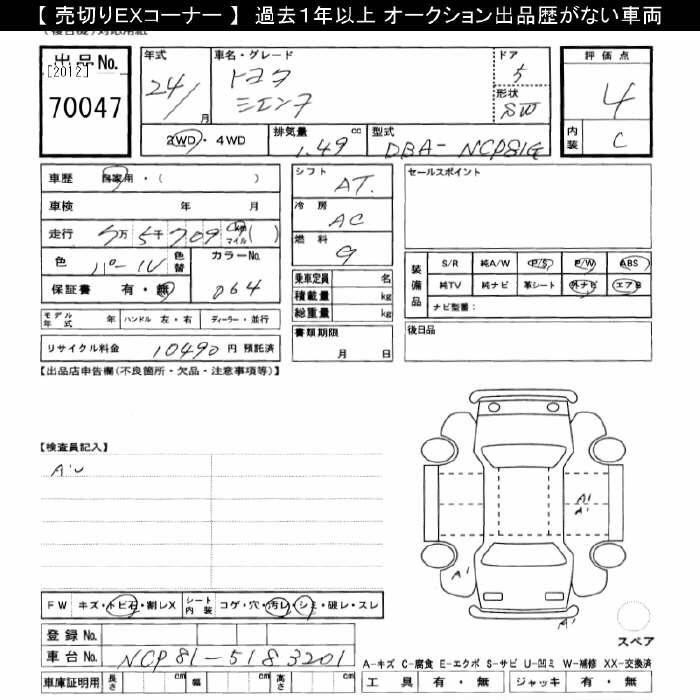 【 売切りEXコーナー 】 過去1年以上 オークション出品歴がない車両
出品No.
[2012]
70047
年式
24/
月
車名・グレード
トヨタ
シエンタ
ドア
5
形状
SW
評価点
4
内装
C
2WD・4WD
排気量
cc
1.49
型式
DBA-NCP81G
車歴 自家用・( )
車検 年 月
走行 5万 5千 709 km マイル ( )
色 パール 色替
カラーNo.
064
保証書 有・無
モデル年式 年 ハンドル 左・右 ディーラー・並行
リサイクル料金 10490 円 預託済
シフト
AT.
冷房
AC
燃料
G
乗車定員 名
積載量 kg
総重量 kg
書類期限
月 日
セールスポイント
装備品
S/R 純A/W P/S P/W ABS
純TV 純ナビ 革シート 外ナビ エアB
ナビ型番:
後日品
【出品店申告欄(不良箇所・欠品・注意事項等)】
【検査員記入】
A'U
A'
A'
A'
A'
FW キズ・トビ石・割レX
シート内装 コゲ・穴・汚レ・シミ・破レ・スレ
登録 No.
車台 No. NCP81-5183201
車庫証明用 長さ cm 幅 cm 高さ cm
スペア
A-キズ C-腐食 E-エクボ S-サビ U-凹ミ W-補修 XX-交換済
工具 有・無 ジャッキ 有・無